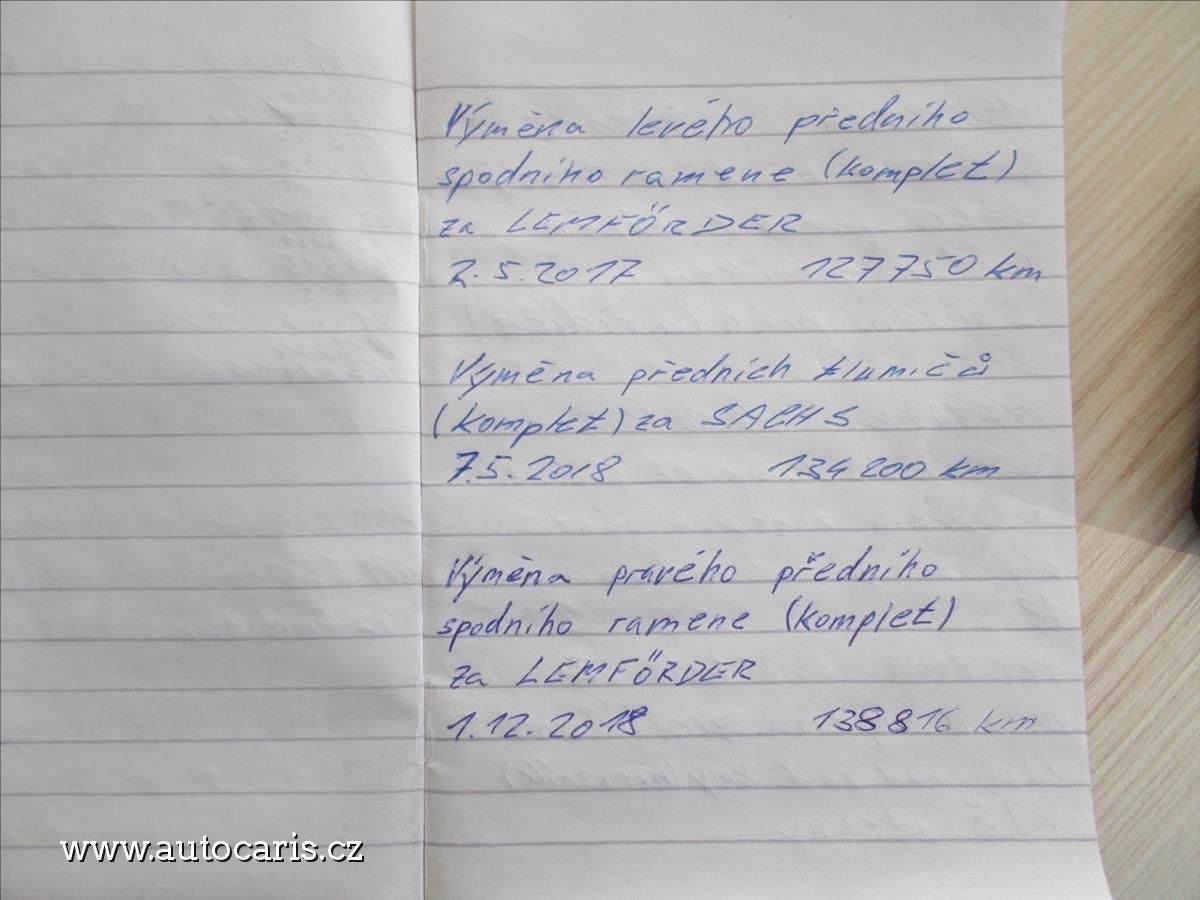 Výměna levého předního
spodního ramene (komplet)
za LEMFÖRDER
2.5.2017 127750 km
Výměna předních tlumičů
(komplet) za SACHS
7.5.2018 134200 km
Výměna pravého předního
spodního ramene (komplet)
za LEMFÖRDER
1.12.2018 138816 km
www.autocaris.cz